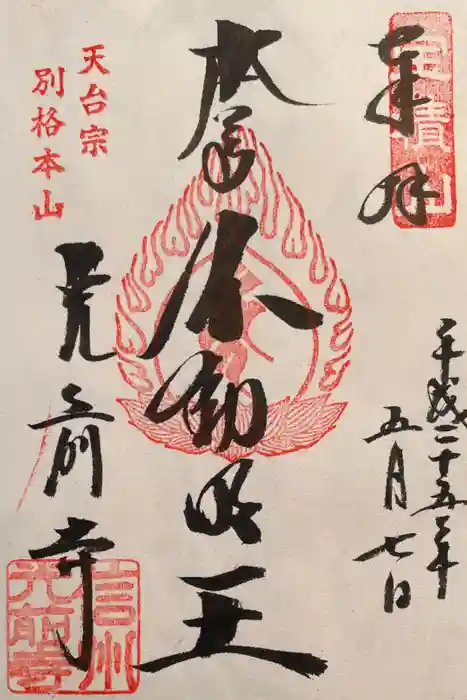 奉拝
宝積山
平成二十五年
五月七日
本尊不動明王
天台宗
別格本山
光前寺
信州
光前寺